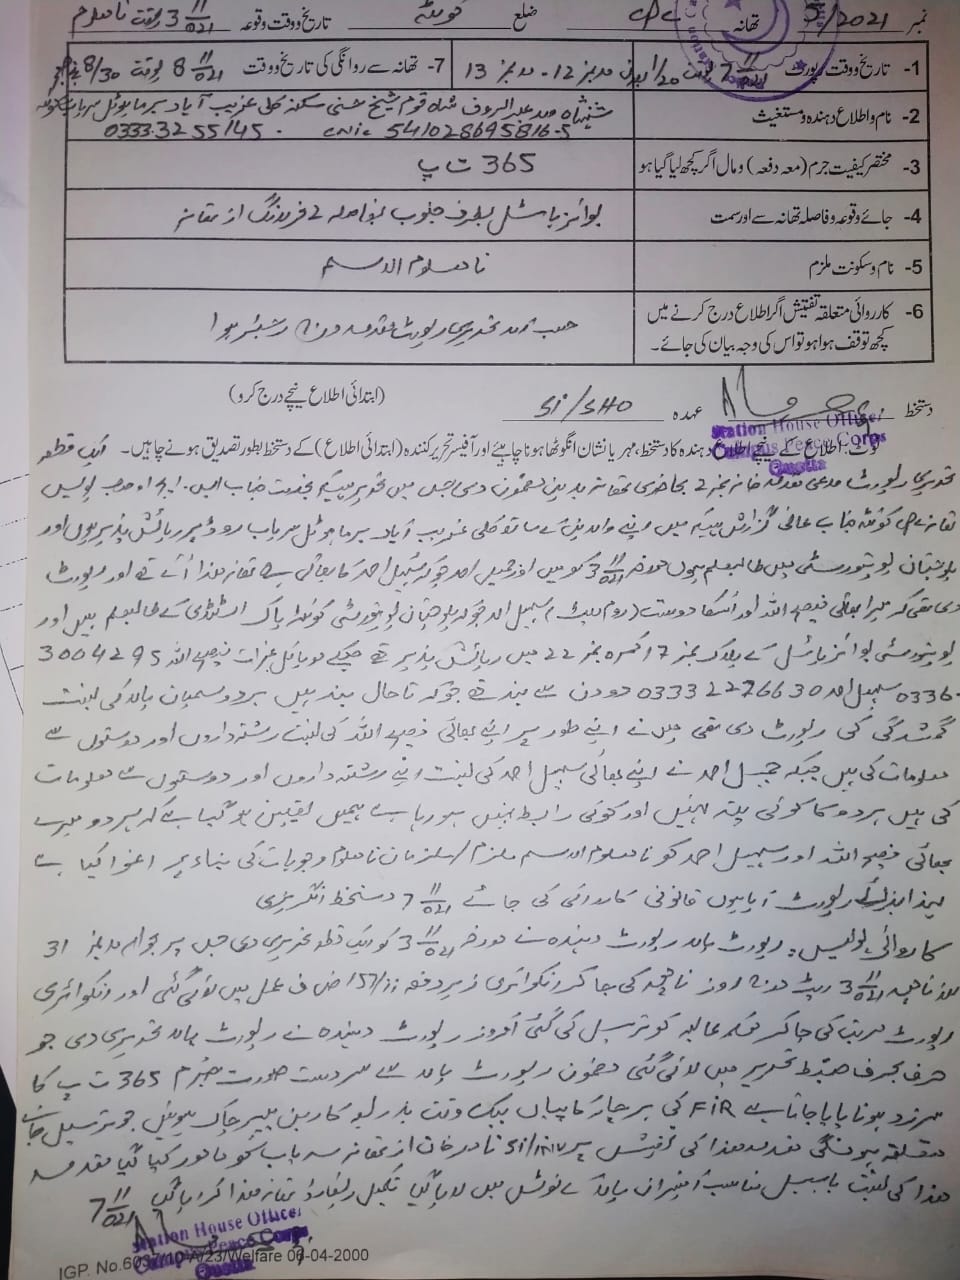 نمبر /2021 تھانہ CPC ضلع کوئٹہ تاریخ و وقت وقوعہ 3 11/021 بوقت نامعلوم
1- تاریخ و وقت رپورٹ 7 11/021 بوقت 20/ مد نمبر 12 - مد نمبر 13
7- تھانہ سے روانگی کی تاریخ و وقت 8 11/021 بوقت 8/30 بجے
2- نام و اطلاع دہندہ و مستغیث
شہنشاہ ولد عبدالروف شاہ قوم شیخ حسنی سکنہ کلی غریب آباد برما ہوٹل سریاب کوئٹہ
0333.3255145 - CNIC 541028695816-5
3- مختصر کیفیت جرم (معہ دفعہ) و مال اگر کچھ لیا گیا ہو
365 ت پ
4- جائے وقوعہ و فاصلہ تھانہ سے اور سمت
بوائز ہاسٹل بطرف جنوب بفاصلہ 2 فرلانگ از تھانہ
5- نام و سکونت ملزم
نامعلوم الاسم
6- کارروائی متعلقہ تفتیش اگر اطلاع درج کرنے میں
کچھ توقف ہوا ہو تو اس کی وجہ بیان کی جائے۔
حسب آمد تحریری رپورٹ مقدمہ درج رجسٹر ہوا
دستخط عہدہ SI/SHO (ابتدائی اطلاع نیچے درج کرو)
Station House Officer
Campus Peace Corps
Quetta
نوٹ: اطلاع کے نیچے اطلاع دہندہ کا دستخط، مہر یا نشان انگوٹھا ہونا چاہیئے اور آفیسر تحریر کنندہ (ابتدائی اطلاع) کے دستخط بطور تصدیق ہونے چاہیں۔ ایک قطعہ
تحریری رپورٹ مدعی مقدمہ خانہ نمبر 2 بحاضری تھانہ بدیں مضمون دی جس میں تحریر ہیکہ بخدمت جناب ایس۔ ایچ او صاحب پولیس
تھانہ کوئٹہ جناب عالی گزارش ہیکہ میں اپنے والدین کے ساتھ کلی غریب آباد برما ہوٹل سریاب روڈ پر رہائش پذیر ہوں اور
بلوچستان یونیورسٹی میں طالبعلم ہوں مورخہ 3 11/021 کو میں اور جمیل احمد جو کہ سہیل احمد کا بھائی ہے تھانہ ھذا آئے تھے اور رپورٹ
دی تھی کہ میرا بھائی فصیح اللہ اور اسکا دوست (روم میٹ) سہیل احمد جو کہ بلوچستان یونیورسٹی کوئٹہ پاک اسٹڈی کے طالبعلم ہیں اور
یونیورسٹی بوائز ہاسٹل کے بلاک نمبر 7 کمرہ نمبر 22 میں رہائش پذیر تھے جنکے موبائل نمبرات فصیح اللہ 3004295
0336- سہیل احمد 03332276630 دو دن سے بند تھے جو کہ تاحال بند ہیں ہر دو مسمیان بالا کی نسبت
گمشدگی کی رپورٹ دی تھی میں نے اپنے طور پر اپنے بھائی فصیح اللہ کی نسبت رشتہ داروں اور دوستوں سے
معلومات کی ہیں جبکہ جمیل احمد نے اپنے بھائی سہیل احمد کی نسبت اپنے رشتہ داروں اور دوستوں سے معلومات
کی ہیں ہر دو کا کوئی پتہ نہیں اور کوئی رابطہ نہیں ہو رہا ہے ہمیں یقین ہو گیا ہے کہ ہر دو میرے
بھائی فصیح اللہ اور سہیل احمد کو نامعلوم الاسم ملزم/ملزمان نامعلوم وجوہات کی بناء پر اغوا کیا ہے
لہذا رپورٹ قانونی کاروائی کی جائے 7 11/021 دستخط انگریزی
کاروائی پولیس۔ رپورٹ بالا رپورٹ دہندہ نے مورخہ 3 11/021 کو ایک قطعہ تحریری دی جس پر بحوالہ مد نمبر 31
روزنامچہ 3 11/021 رپٹ درج روزنامچہ کی جا کر انکوائری زیر دفعہ 157/ii ض ف عمل میں لائی گئی اور انکوائری
رپورٹ مرتب کی جا کر حکام بالا کو ترسیل کی گئی آمروز رپورٹ دہندہ نے رپورٹ بالا تحریری دی جو
حرف بحرف ضبط تحریر میں لائی گئی مضمون رپورٹ بالا سے سردست صورت جرم 365 ت پ کا
سرزد ہونا پایا جاتا ہے FIR کی پرچار کاپیاں بیک وقت بذریعہ کاربن پیپر چاک ہوئیں جو ترسیل جات
متعلقہ ہونگی مقدمہ ھذا کی تفتیش پر SI/INV نادر خان از تھانہ سریاب کو مامور کیا گیا مقدمہ
ھذا کی نسبت بالا افسران بالا کے نوٹس میں لایا گیا تکمیل ریکارڈ تھانہ ھذا کرایا گیا 7 11/021
Station House Officer
Campus Peace Corps
Quetta
IGP. No.6037/10-A/23/Welfare 06-04-2000